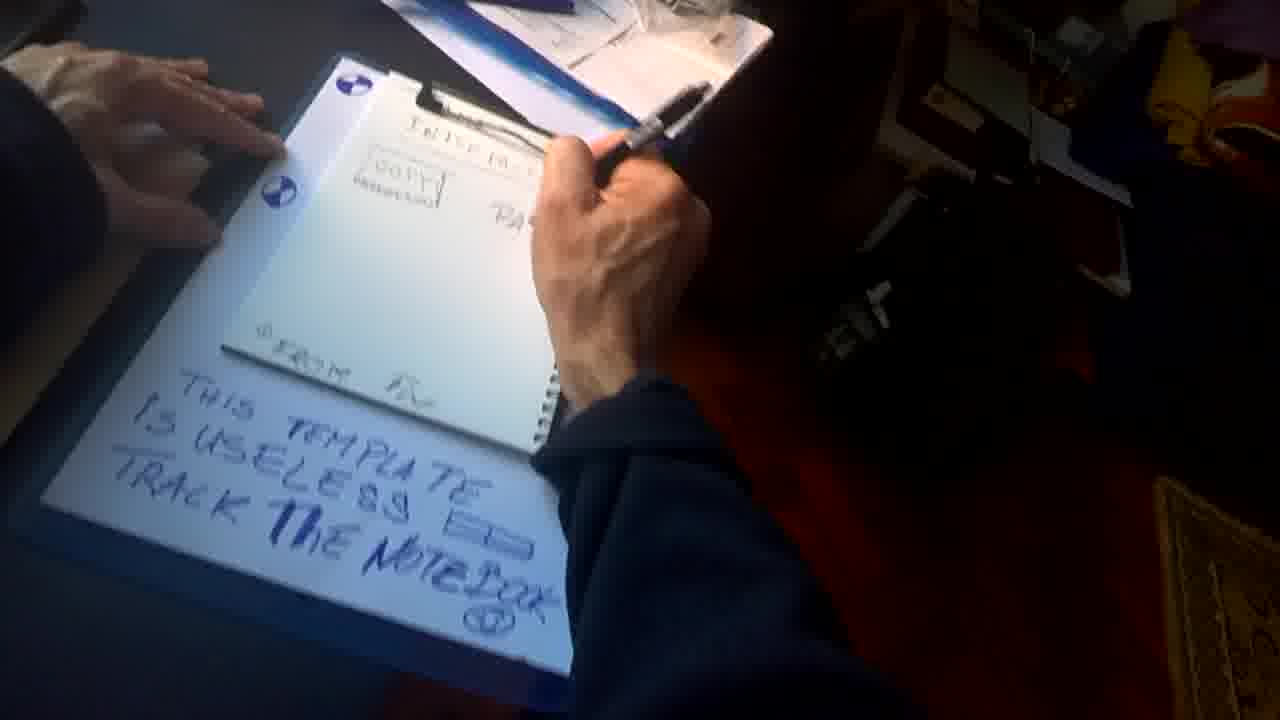 COPY
PA
FROM
THIS TEMPLATE
IS USELESS
TRACK THE NOTEBOOK